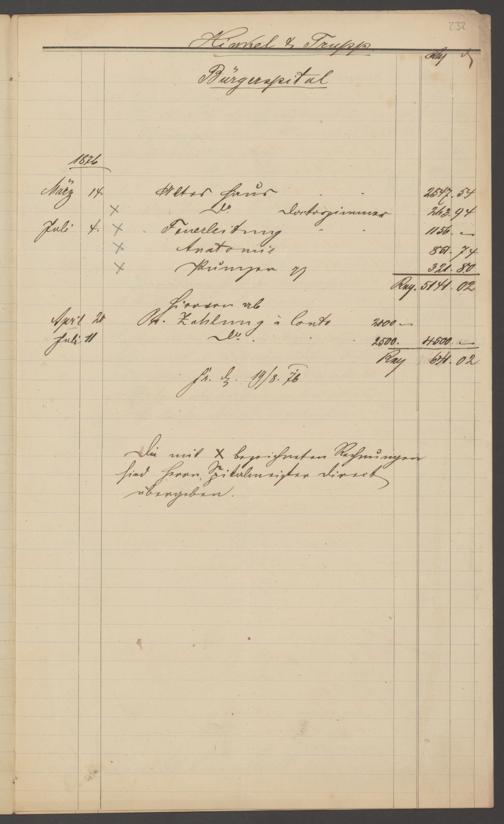 232
Hinkel & Trupp
Bürgerspital
1876
März 14 Altes Haus 2547.54
× Do Doctorzimmer 263.94
Juli 4. × Feuerleitung 1156.—
× Anatomie 851.74
× Pumpen 321.80
5141.02
Hievon ab
April 28 Pr. Zahlung à Conto 2000.—
Juli 11 Do 2500. 4500.—
641.02
19/8. 76
Die mit × bezeichneten Rechnungen
sind Herrn Spitalmeister direct
übergeben.